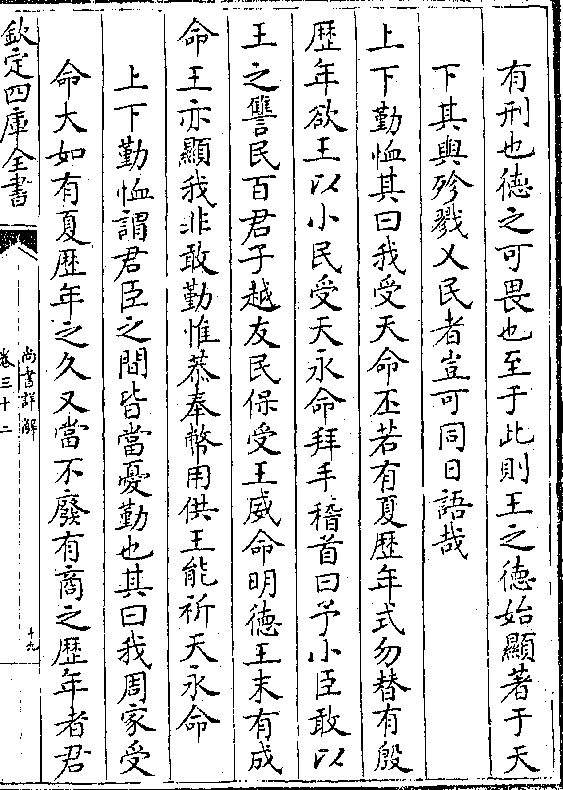 有刑也徳之可畏也至于此則王之德始顯著于天
下其與殄戮乂民者豈可同日語哉
上下勤恤其曰我受天命丕若有夏歴年式勿替有殷
歴年欲王以小民受天永命拜手稽首曰予小臣敢以
王之讐民百君子越友民保受王威命明徳王末有成
命王亦顯我非敢勤惟恭奉幣用供王能祈天永命
上下勤恤謂君臣之間皆當憂勤也其曰我周家受
命大如有夏歴年之久又當不廢有商之歴年者君
欽定四庫全書
尚書詳解
卷三十二
十九